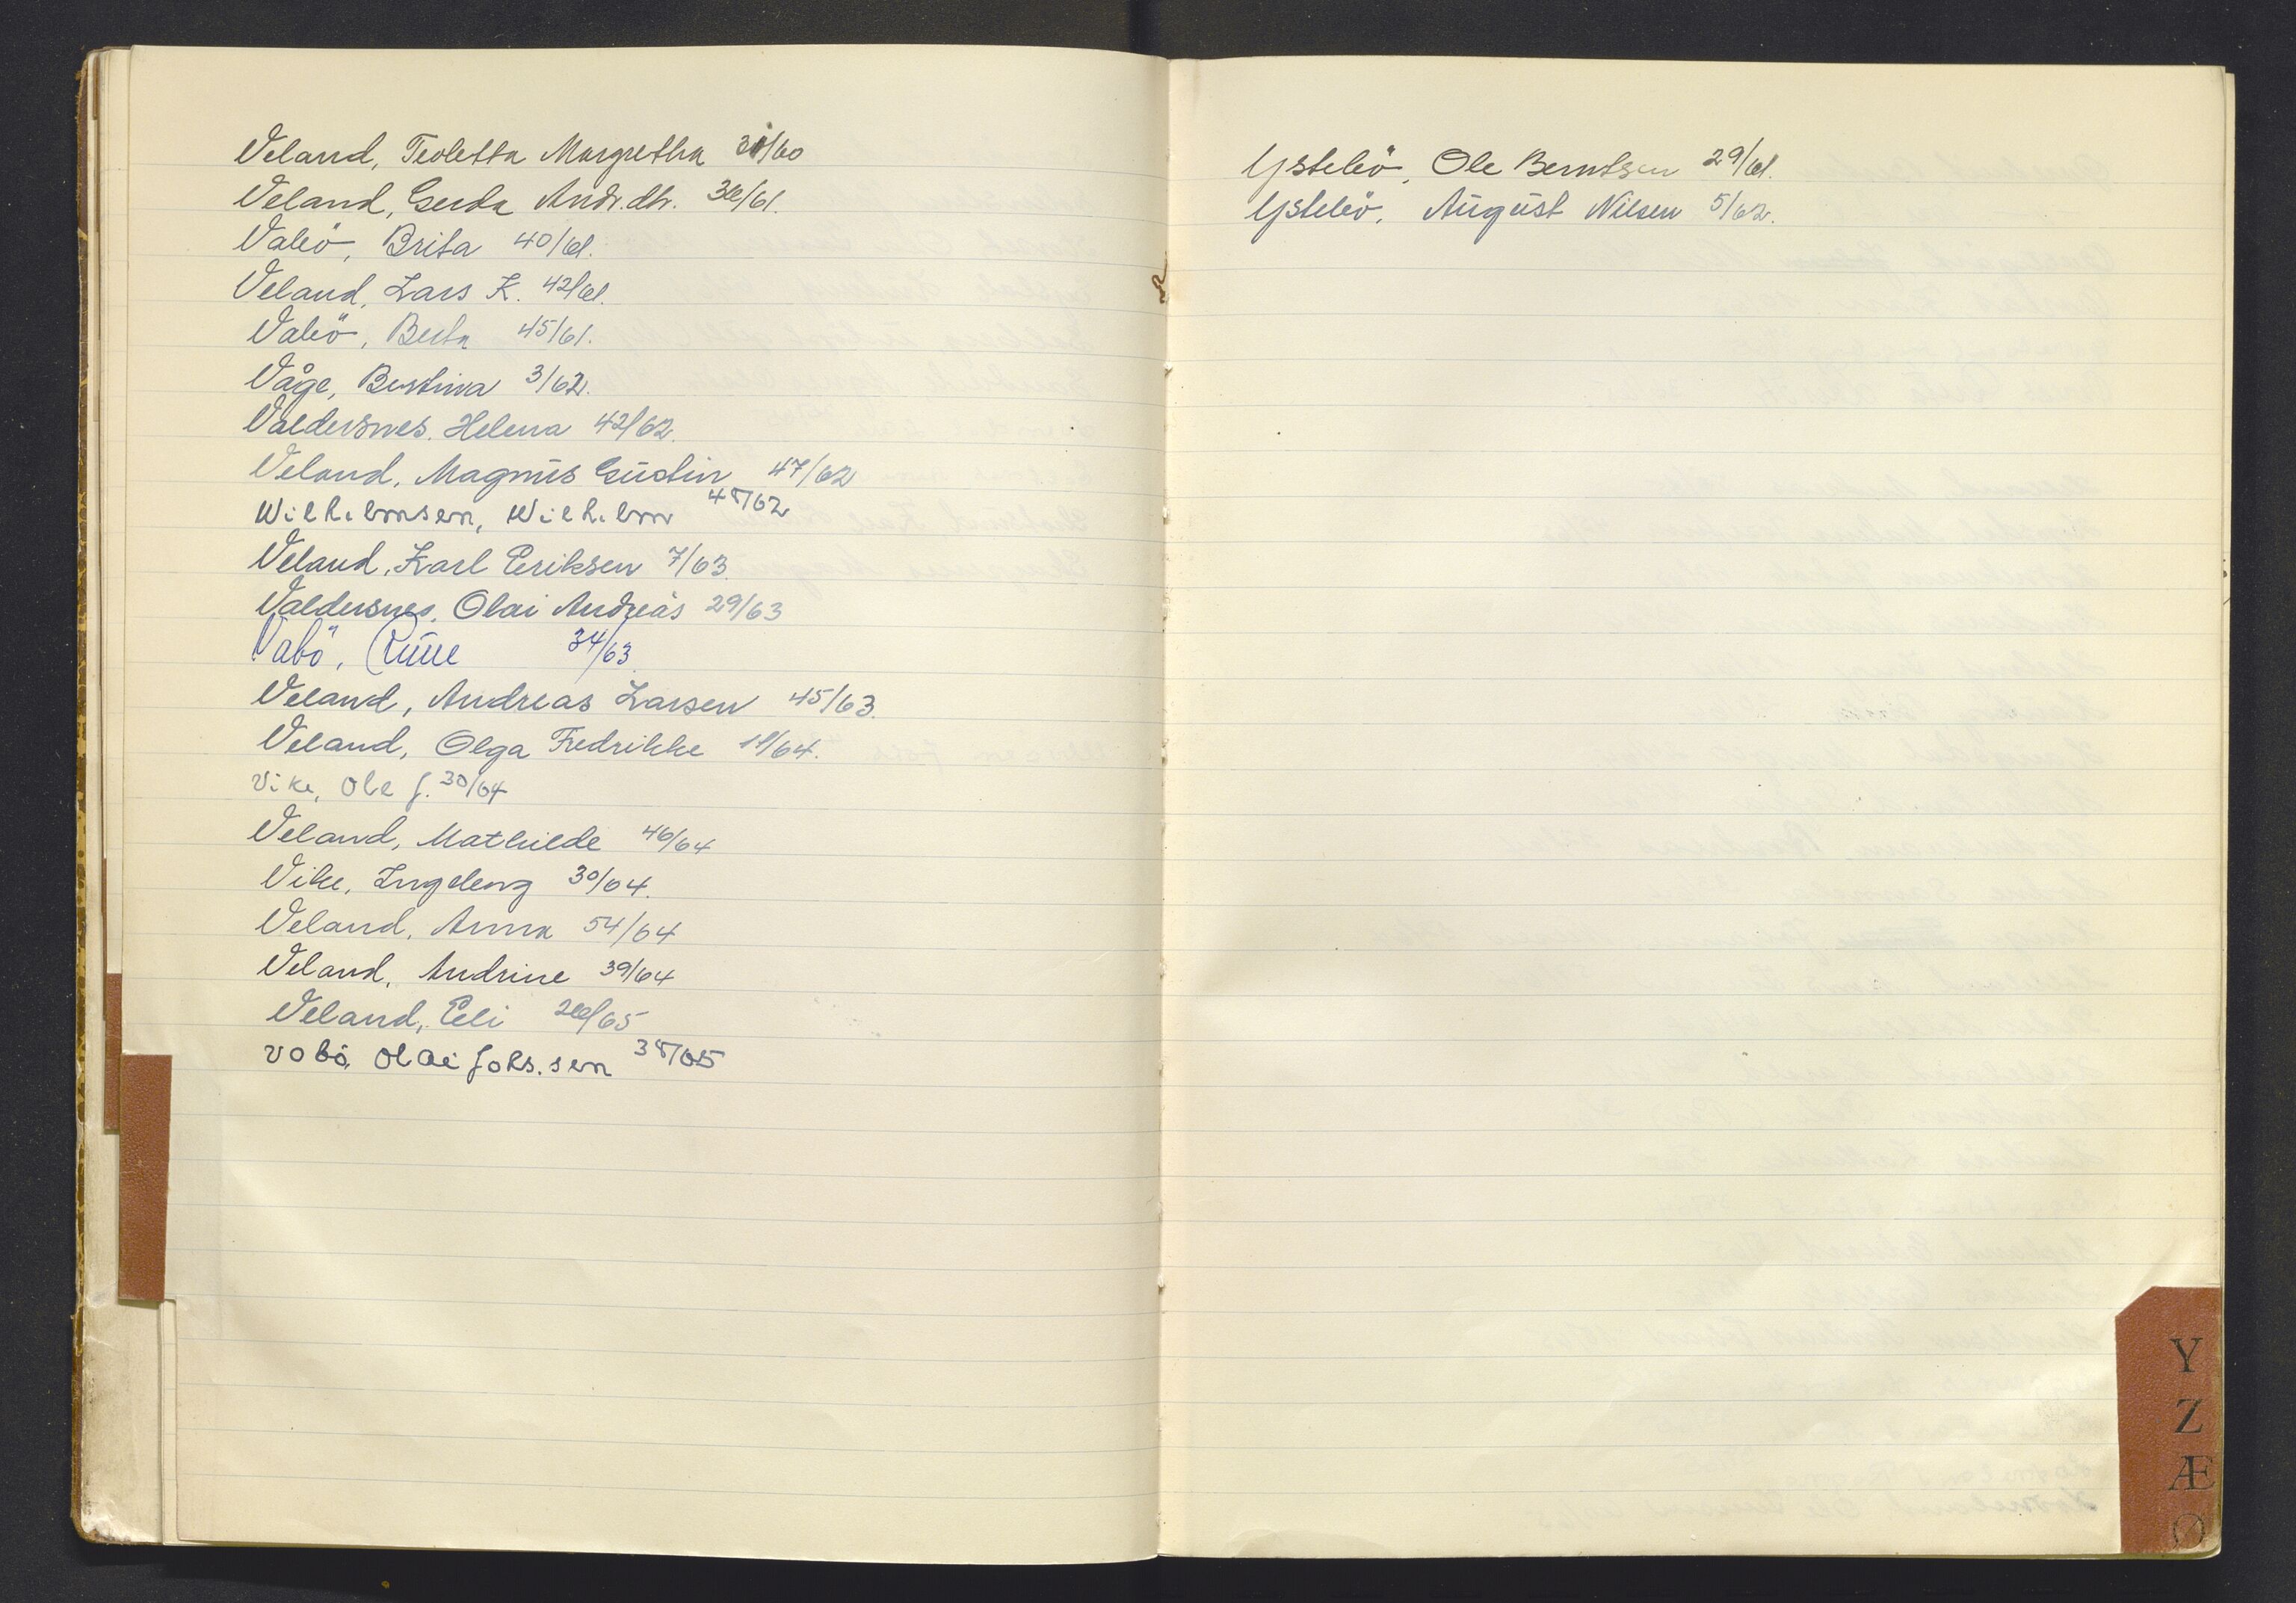 Veland, Teoletta Margretha 31/60
Veland, Gerda Andr.dtr. 36/61.
Vabö, Brita 40/61.
Veland, Lars K. 42/61.
Vabö, Berta 45/61.
Våge, Bertina 3/62.
Valdersnes, Helena 42/62.
Veland, Magnus Gustin 47/62
Wilhelmsen, Wilhelm 48/62
Veland, Karl Eriksen 7/63.
Valdersnes, Olai Andreas 29/63
Vabö, Rune 34/63.
Veland, Andreas Larsen 45/63.
Veland, Olga Fredrikke 11/64.
Vike, Ole J. 30/64
Veland, Mathilde 46/64
Vike, Ingeborg 30/64.
Veland, Anna 54/64
Veland, Andrine 39/64
Veland, Eli 26/65
Vabö, Olai Johs.sen 38/65
Ystebö, Ole Berntsen 29/61.
Ystebö, August Nilsen 5/62.
Y
Z
Æ
Ø